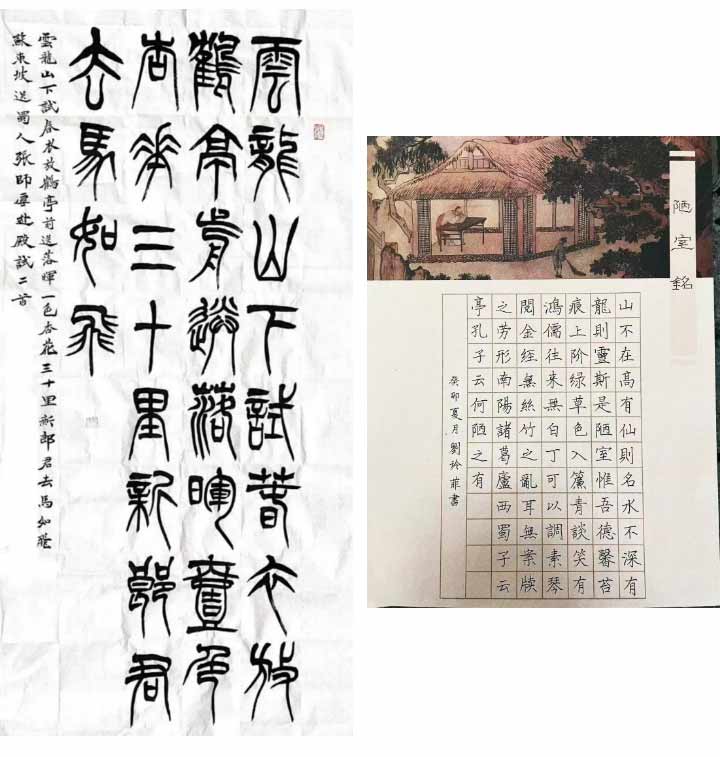 雲龍山下試春衣放
鶴亭前送落暉壹色
杏華三十里新郎君
去馬如飛
雲龍山下試春衣放鶴亭前送落暉一色杏花三十里新郎君去馬如飛
蘇東坡送蜀人張師厚赴殿試二首
陋室銘
山不在高有仙則名水不深有
龍則靈斯是陋室惟吾德馨苔
痕上阶绿草色入簾青談笑有
鴻儒往來無白丁可以調素琴
閱金經無絲竹之亂耳無案牘
之劳形南陽諸葛廬西蜀子云
亭孔子云何陋之有
癸卯夏月劉玲菲書